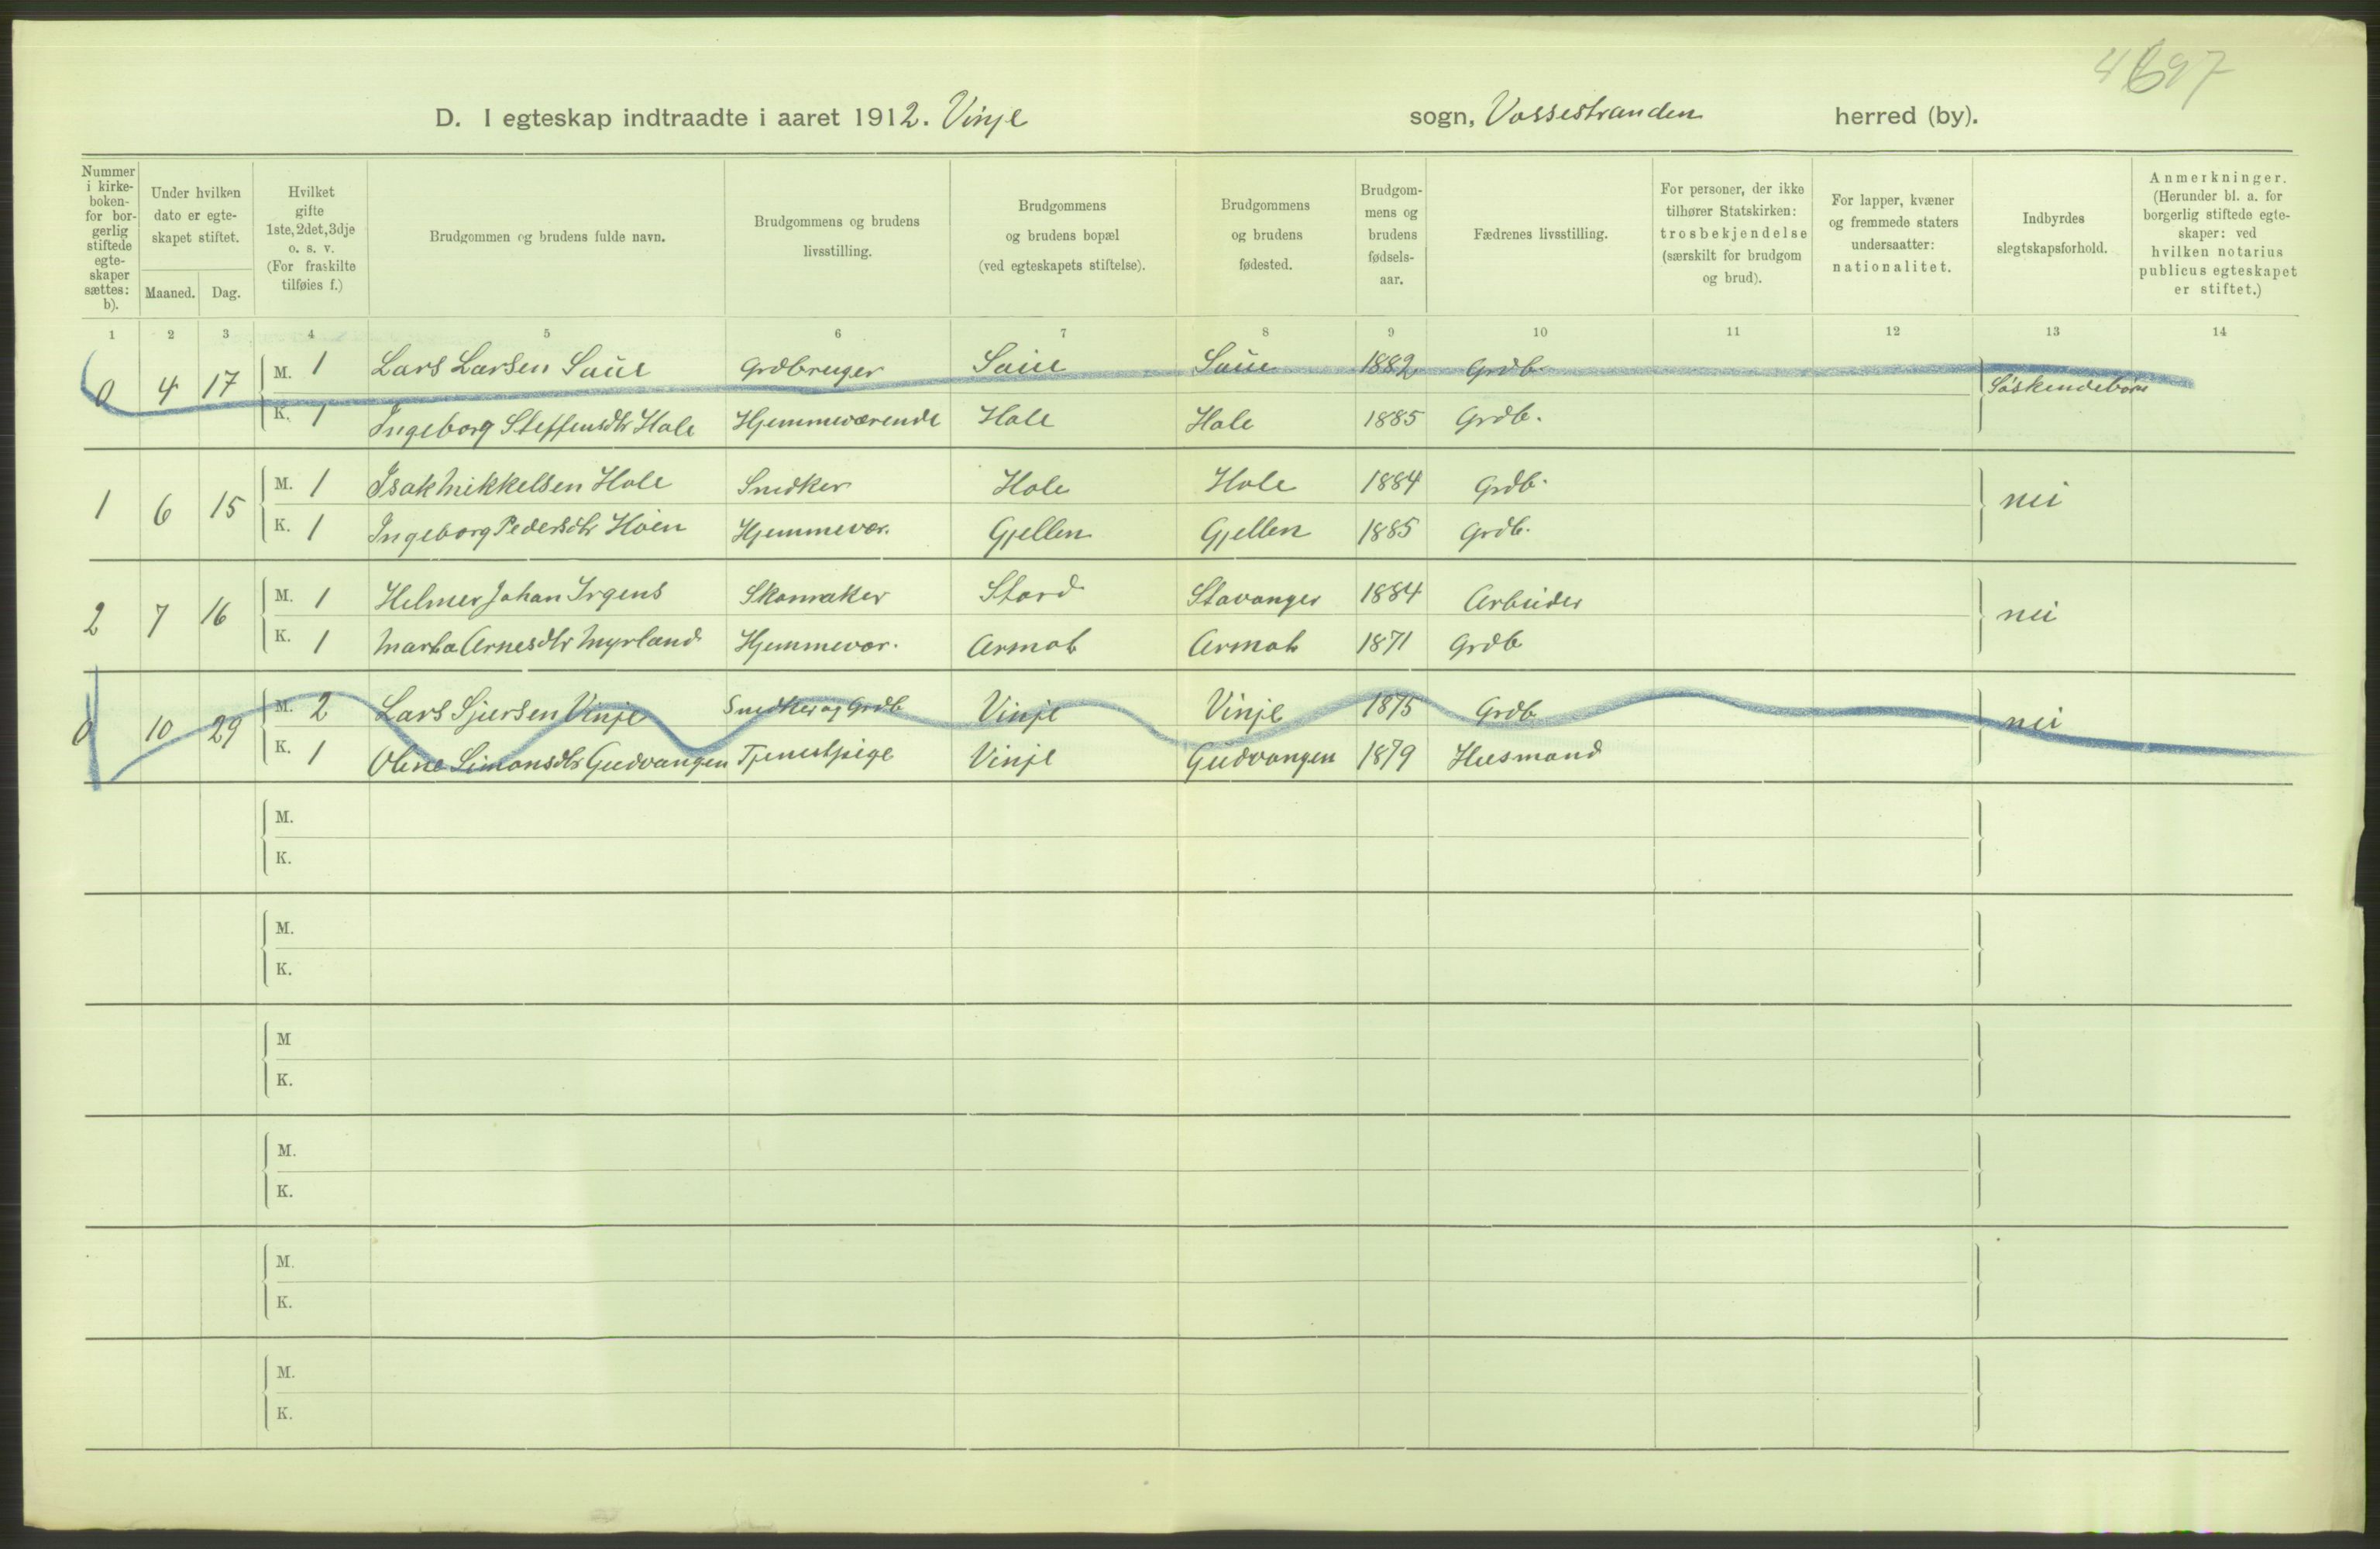 D. I egteskap indtraadte i aaret 1912. Vinje sogn, Vossestranden herred (by).
Nummer i kirkeboken- for borgerlig stiftede egteskaper sættes: b).
Under hvilken dato er egteskapet stiftet.
Maaned. Dag.
Hvilket gifte 1ste, 2det, 3dje o. s. v. (For fraskilte tilføies f.)
Brudgommen og brudens fulde navn.
Brudgommens og brudens livsstilling.
Brudgommens og brudens bopæl (ved egteskapets stiftelse).
Brudgommens og brudens fødested.
Brudgommens og brudens fødselsaar.
Fædrenes livsstilling.
For personer, der ikke tilhører Statskirken: trosbekjendelse (særskilt for brudgom og brud).
For lapper, kvæner og fremmede staters undersaatter: nationalitet.
Indbyrdes slegtskapsforhold.
Anmerkninger. (Herunder bl. a. for borgerlig stiftede egteskaper: ved hvilken notarius publicus egteskapet er stiftet.)
1 2 3 4 5 6 7 8 9 10 11 12 13 14
0 4 17 M. 1 Lars Larsen Saue Grdbruger Saue Saue 1882 Grdb. Søskendebørn
K. 1 Ingeborg Steffensdtr Hole Hjemmeværende Hole Hole 1885 Grdb.
1 6 15 M. 1 Isak Mikkelsen Hole Snedker Hole Hole 1884 Grdb. nei
K. 1 Ingeborg Pedersdtr Høen Hjemmevær. Gjellen Gjellen 1885 Grdb.
2 7 16 M. 1 Helmer Johan Irgens Skomaker Stord Stavanger 1884 Arbeider nei
K. 1 Marta Arnesdtr Myrland Hjemmevær. Armot Armot 1871 Grdb
0 10 29 M. 2 Lars Sjursen Vinje Snedker og Grdb Vinje Vinje 1875 Grdb nei
K. 1 Olene Simonsdtr Gudvangen Tjenestpige Vinje Gudvangen 1879 Husmand
M.
K.
M.
K.
M
K.
M.
K.
M.
K.
M.
K.